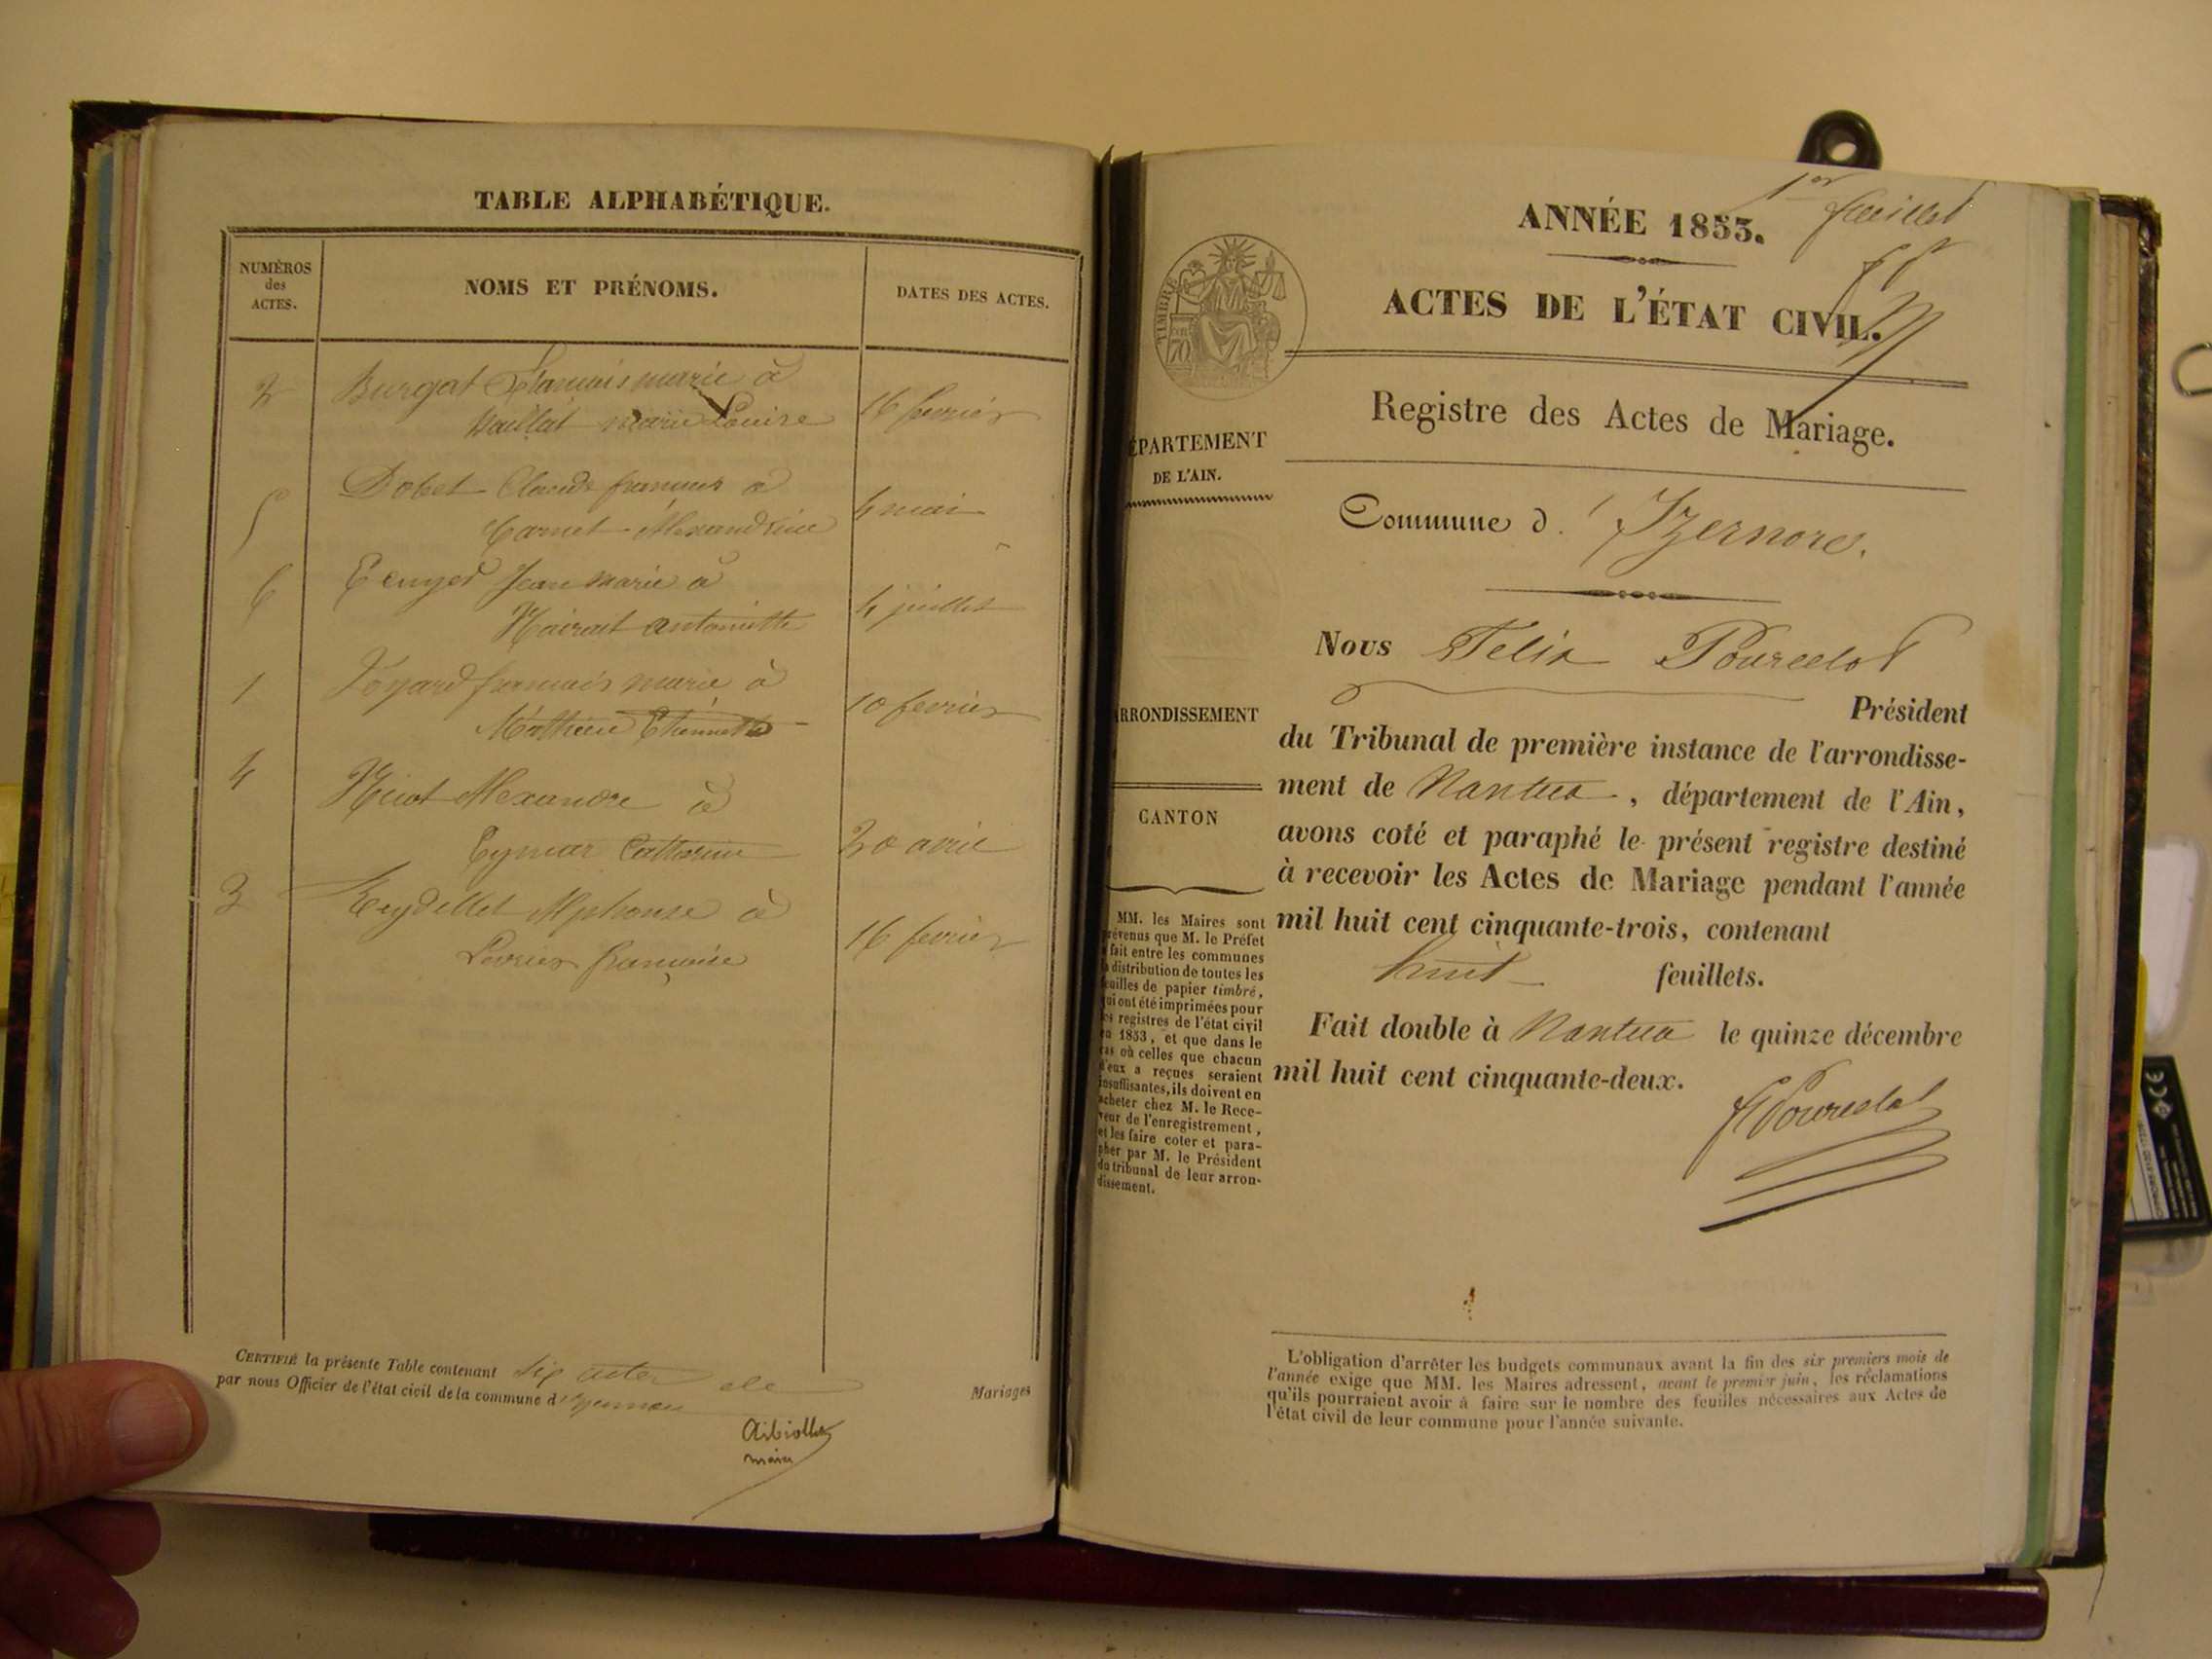 TABLE ALPHABÉTIQUE.
NUMÉROS
des
ACTES.
NOMS ET PRÉNOMS.
DATES DES ACTES.
2 Burgat françois marie à
Maillat marie Louise 16 fevrier
5 Dobet Claude françois à
Carnet Alexandrine 4 mai
6 Ecuyer Jean Marie à
antoinette 4 juillet
1 Goyard françois marie à
Mathieu Etiennette 10 fevrier
4 Alexandre à
Eymar Catherine 20 avril
3 Reydellet Alphonse à
Levrier françoise 16 fevrier
CERTIFIÉ la présente Table contenant six actes
par nous Officier de l'état civil de la commune d'Izernore
maire
Mariages
1er feuillet
ANNÉE 1853.
ACTES DE L'ÉTAT CIVIL.
TIMBRE
70
Registre des Actes de Mariage.
ÉPARTEMENT
DE L'AIN.
Commune d'Izernore.
Nous Felix Pourcelot
Président
RRONDISSEMENT
du Tribunal de première instance de l'arrondisse-
ment de Nantua, département de l'Ain,
CANTON
avons coté et paraphé le présent registre destiné
à recevoir les Actes de Mariage pendant l'année
mil huit cent cinquante-trois, contenant
huit feuillets.
Fait double à Nantua le quinze décembre
mil huit cent cinquante-deux.
Pourcelot
MM. les Maires sont
révenus que M. le Préfet
fait entre les communes
distribution de toutes les
euilles de papier timbré,
ui ont été imprimées pour
es registres de l'état civil
n 1853, et que dans le
as où celles que chacun
d'eux a reçues seraient
insuffisantes, ils doivent en
acheter chez M. le Rece-
veur de l'enregistrement,
et les faire coter et para-
pher par M. le Président
du tribunal de leur arron-
dissement.
L'obligation d'arrêter les budgets communaux avant la fin des six premiers mois de
l'année exige que MM. les Maires adressent, avant le premier juin, les réclamations
qu'ils pourraient avoir à faire sur le nombre des feuilles nécessaires aux Actes de
l'état civil de leur commune pour l'année suivante.